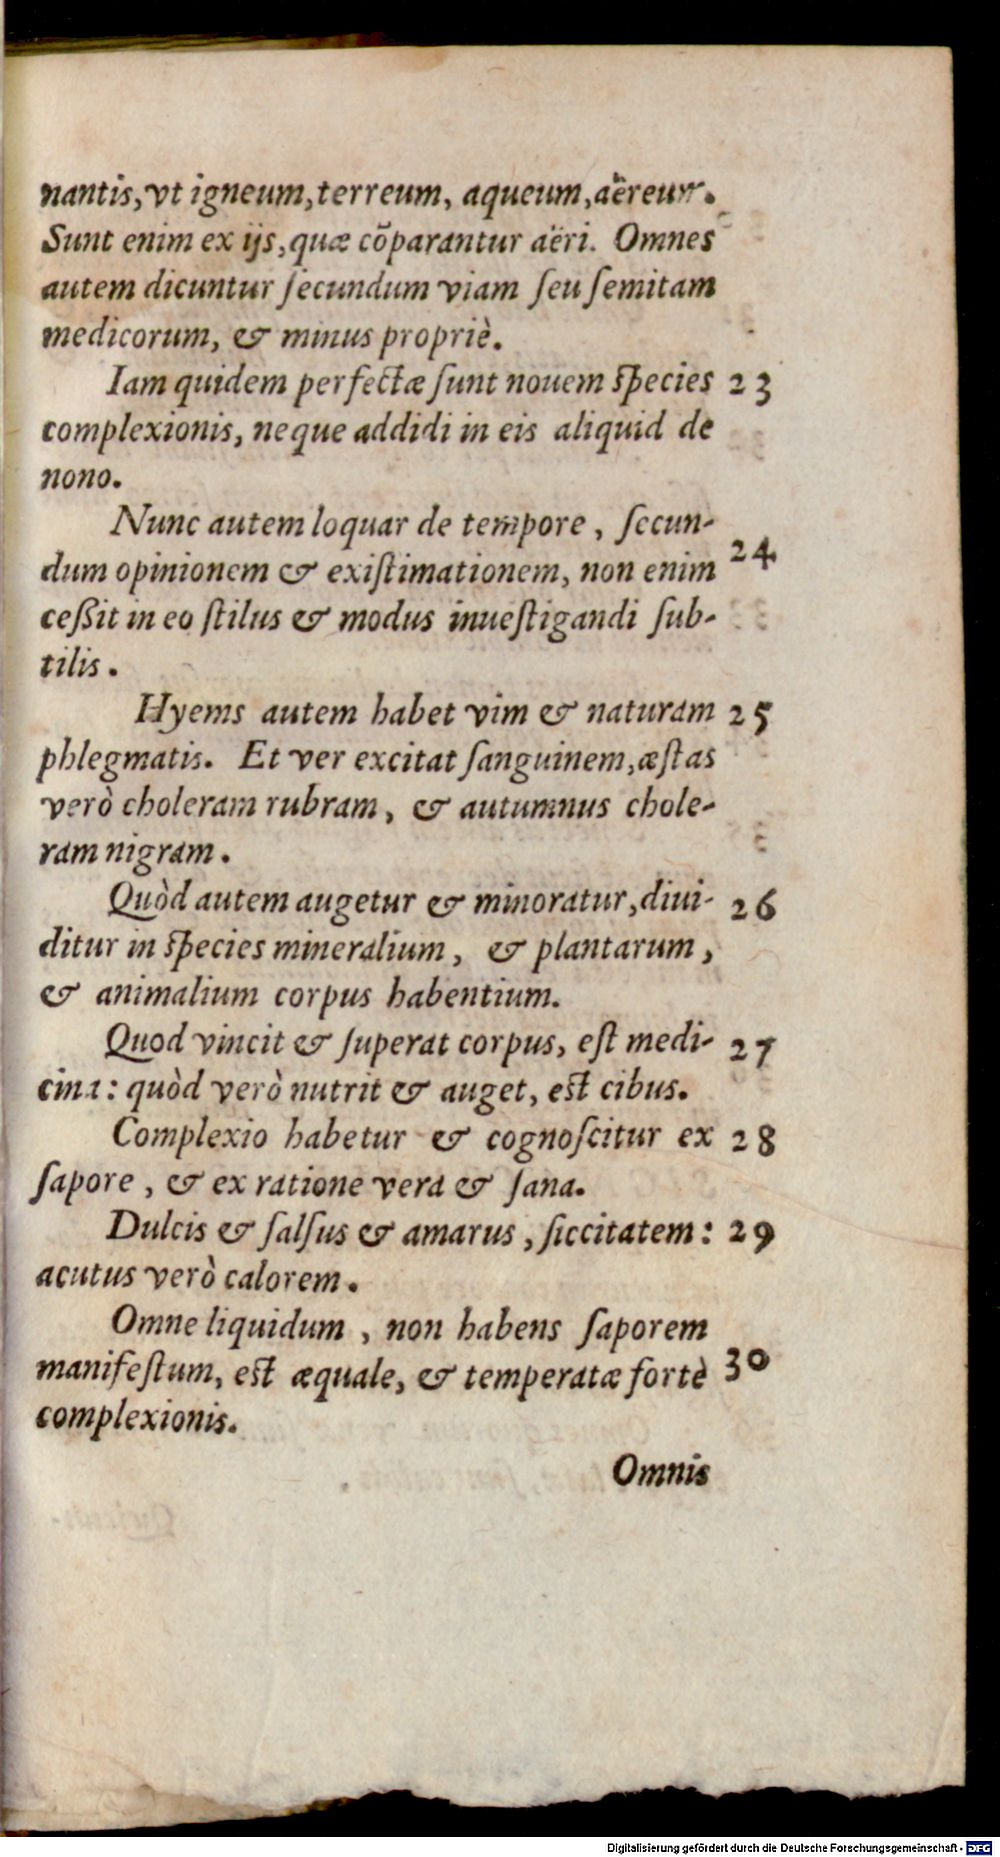 nantis, vt igneum, terreum, aqueum, aëreum.
Sunt enim ex ijs, quæ cõparantur aëri. Omnes
autem dicuntur ſecundum viam ſeu ſemitam
medicorum, & minus propriè.
Iam quidem perfectæ ſunt nouem ſpecies 23
complexionis, neque addidi in eis aliquid de
nono.
Nunc autem loquar de tempore, ſecun-
dum opinionem & exiſtimationem, non enim 24
ceßit in eo ſtilus & modus inueſtigandi ſub-
tilis.
Hyems autem habet vim & naturam 25
phlegmatis. Et ver excitat ſanguinem, æſtas
verò choleram rubram, & autumnus chole-
ram nigram.
Quòd autem augetur & minoratur, diui- 26
ditur in ſpecies mineralium, & plantarum,
& animalium corpus habentium.
Quod vincit & ſuperat corpus, eſt medi- 27
cina: quòd verò nutrit & auget, eſt cibus.
Complexio habetur & cognoſcitur ex 28
ſapore, & ex ratione vera & ſana.
Dulcis & ſalſus & amarus, ſiccitatem: 29
acutus verò calorem.
Omne liquidum, non habens ſaporem
manifeſtum, eſt æquale, & temperatæ fortè 30
complexionis.
Omnis
Digitalisierung gefördert durch die Deutsche Forschungsgemeinschaft - DFG